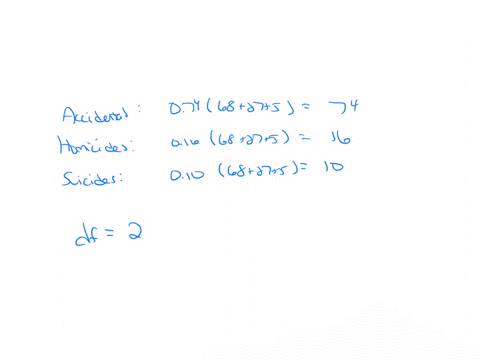 Accidental: 0.74 (68+27+5) = 74
Homicides: 0.16 (68+27+5) = 16
Suicides: 0.10 (68+27+5) = 10
df = 2